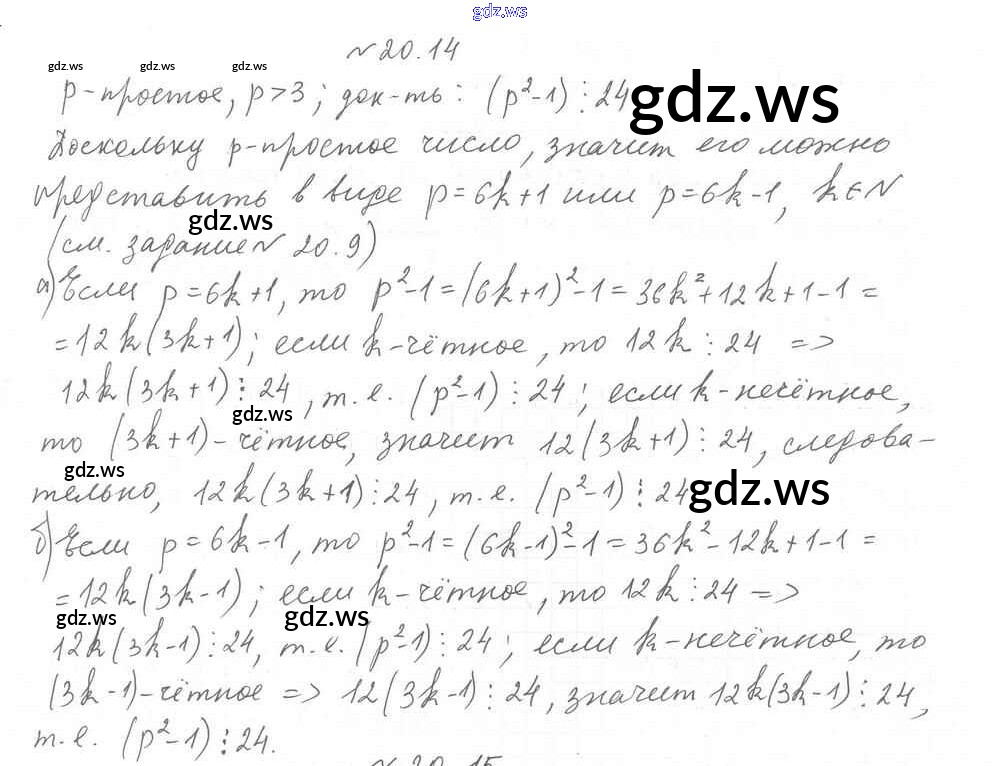 gdz.ws
№ 20.14
gdz.ws gdz.ws gdz.ws
p-простое, p>3; док-ть: (p²-1)⋮24
gdz.ws
Поскольку p-простое число, значит его можно
представить в виде p=6k+1 или p=6k-1, k∈N
gdz.ws
(см. задание № 20.9)
а) Если p=6k+1, то p²-1=(6k+1)²-1=36k²+12k+1-1=
=12k(3k+1); если k-чётное, то 12k⋮24 =>
12k(3k+1)⋮24, т.е. (p²-1)⋮24; если k-нечётное,
gdz.ws
то (3k+1)-чётное, значит 12(3k+1)⋮24, следова-
gdz.ws
тельно, 12k(3k+1)⋮24, т.е. (p²-1)⋮24
gdz.ws
б) Если p=6k-1, то p²-1=(6k-1)²-1=36k²-12k+1-1=
=12k(3k-1); если k-чётное, то 12k⋮24 =>
gdz.ws gdz.ws
12k(3k-1)⋮24, т.е. (p²-1)⋮24; если k-нечётное, то
(3k-1)-чётное => 12(3k-1)⋮24, значит 12k(3k-1)⋮24,
т.е. (p²-1)⋮24.
№ 20.15